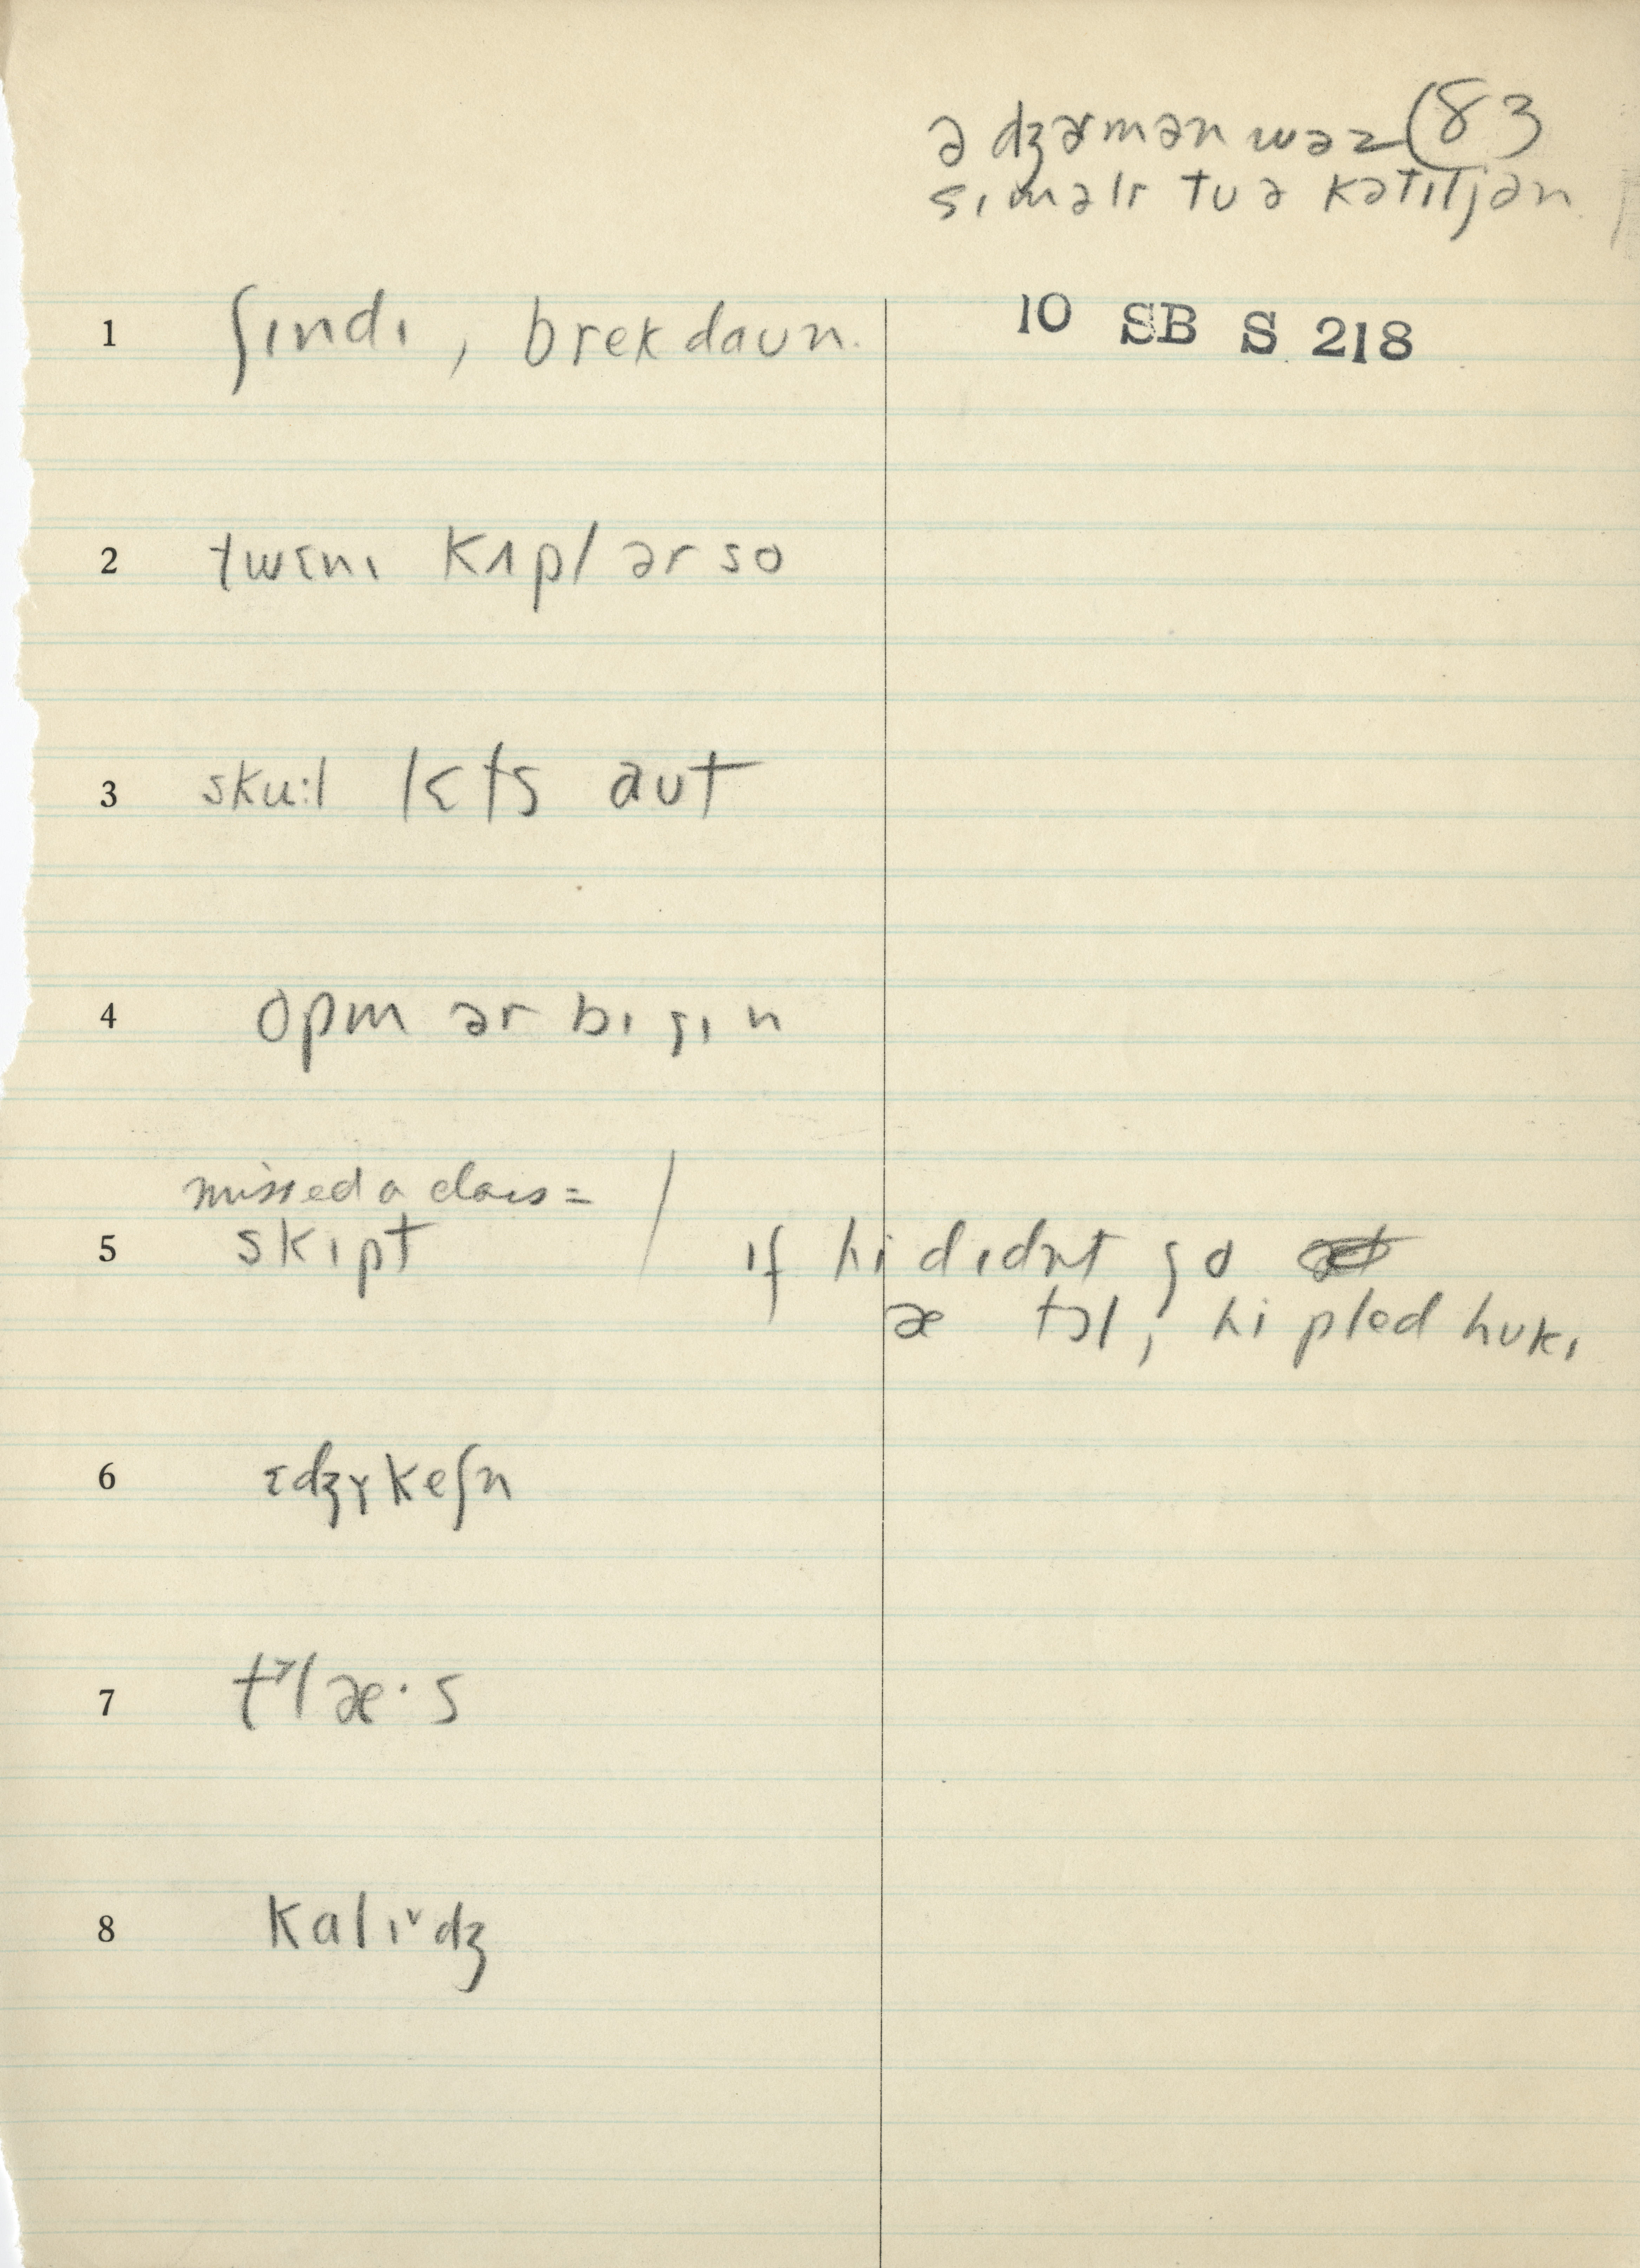 ə dʒɚmən wəz (83
sɪməlr tu ə kətɪljən
1 ʃɪndɪ, brekdaun. 10 SB S 218
2 twɛnɪ kʌpl ər so
3 sku:l lɛts aut
4 opm ər bɪgɪn
missed a class = /
5 skɪpt if hi dɪdn̩t go
æ tɔl, hi pled hukɪ
6 ɛdʒɤkeʃn
7 tˠlæ·s
8 kalɪˇdʒ